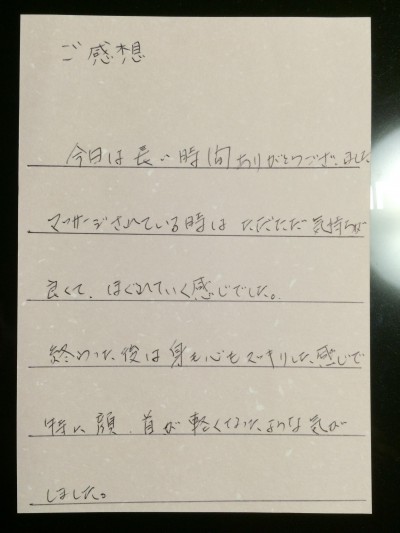 ご感想
今日は長い時間ありがとうございました
マッサージされている時は ただただ気持ちが
良くて、ほぐれていく感じでした。
終わった後は身も心もスッキリした感じで
特に顔、首が軽くなったような気が
しました。